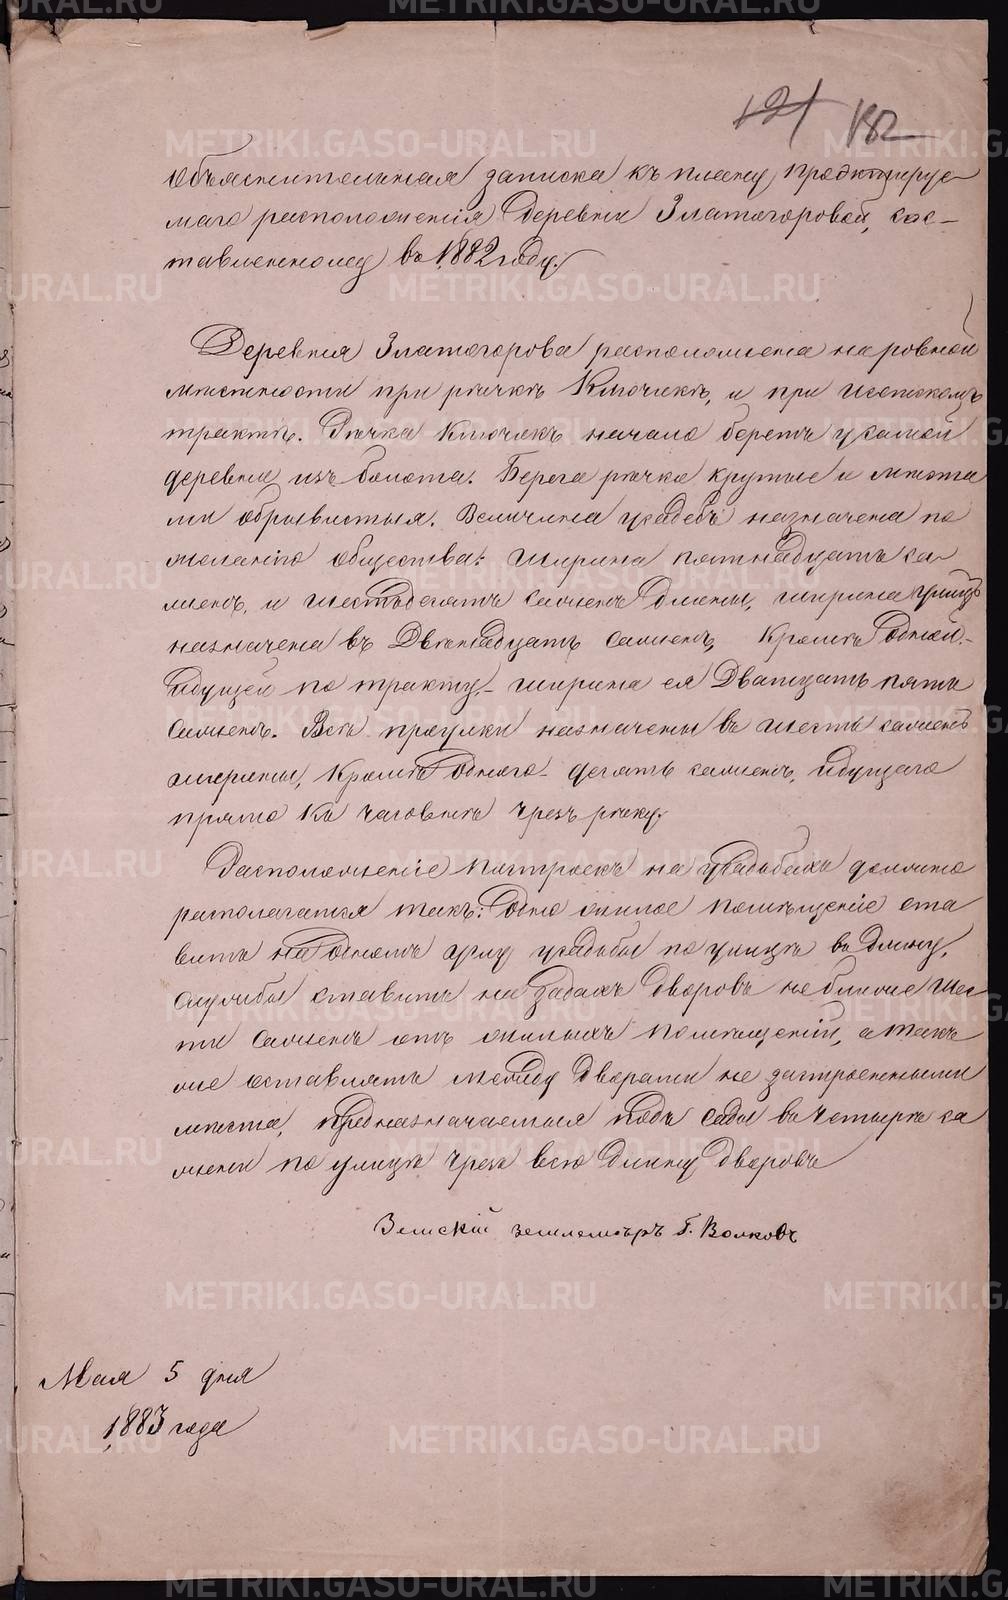 121 182
Объяснительная записка къ плану проэктируе-
маго расположенія деревни Златогоровой, сос-
тавленному въ 1882 году.
Деревня Златогорова расположена на ровной
мѣстности при рѣчкѣ Ключикѣ, и при Исетскомъ
трактѣ. Рѣчка Ключикъ начало беретъ у самой
деревни изъ болота. Берега рѣчки крутые и мѣста
ми обрывистыя. Величина усадебъ назначена по
желанію общества: ширина пятнадцать са-
женъ, и шестьдесятъ саженъ длины, ширина улицъ
назначена въ Двѣнадцать саженъ, Кромѣ Одной-
Идущей по тракту,- ширина ея Дватцать пять
Саженъ. Всѣ проулки назначены въ шесть саженъ
ширины, Кромѣ Одного- десять саженъ, Идущаго
прямо Къ часовнѣ чрезъ рѣку.
Расположеніе Построекъ на усадьбахъ должно
располагатся такъ: Одно жилое помѣщеніе ста
вить на Одномъ углу усадьбы по улицѣ въ Длину,
службы ставить на задахъ Дворовъ не ближе Шес
ти Саженъ отъ жилыхъ Помѣщеній, а так
же оставлять между Дворами не застроенными
мѣста, предназначаемыя подъ сады въ четыре са
жени по улицѣ чрезъ всю Длину Дворовъ
Земскій землемѣръ Г. Волковъ
Мая 5 дня
1883 года
METRIKI.GASO-URAL.RU